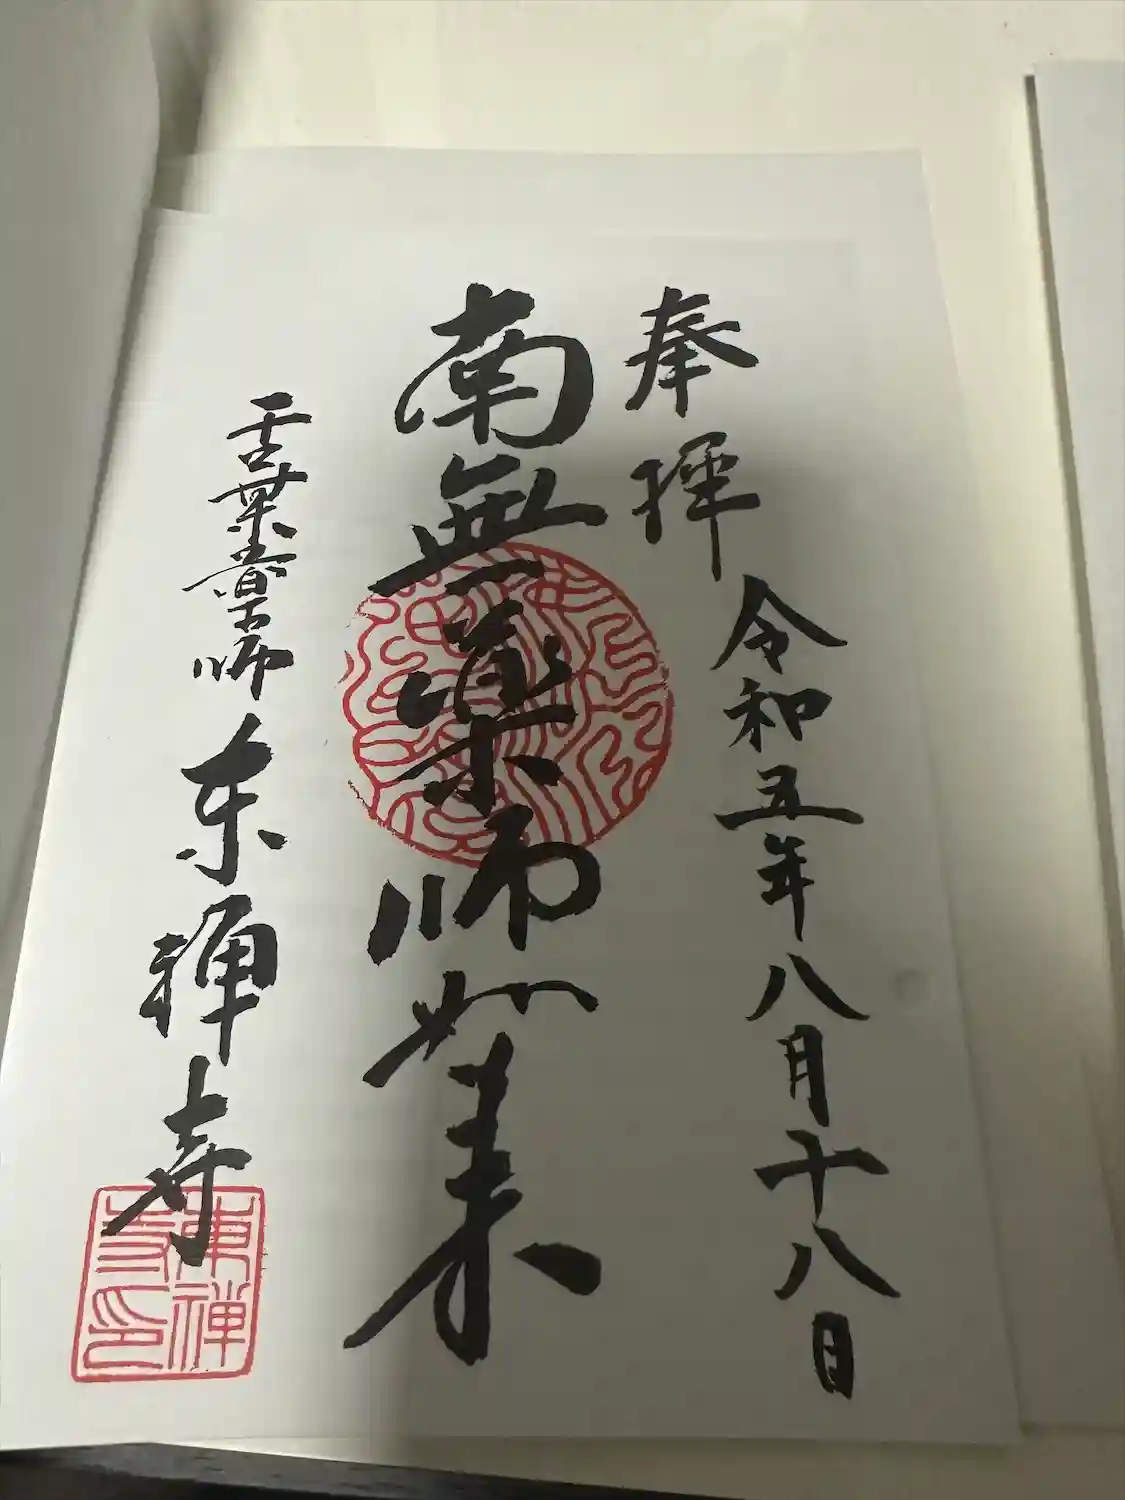 奉拝
令和五年八月十八日
南無薬師如来
言葉薬師 東禅寺
東禅
寺印